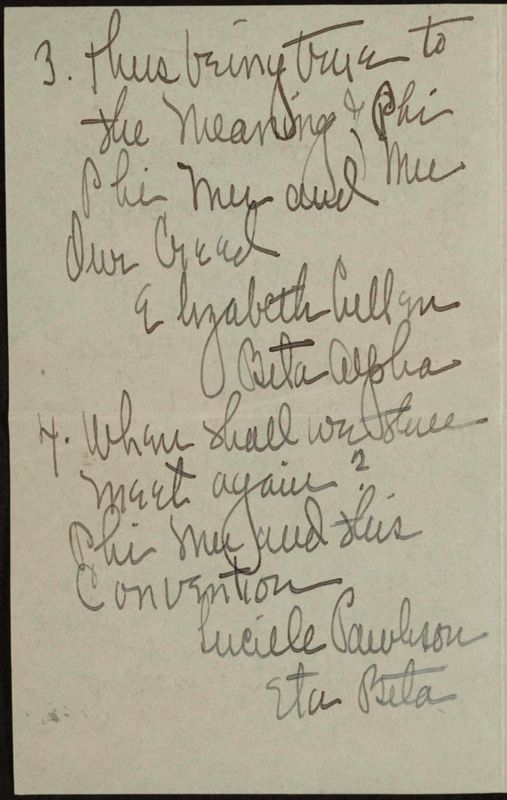 3. Thus being true to
the Meaning of Phi
Phi Mu and Mu
Our Creed
Elizabeth Cullen
Beta Alpha
4. When shall we three
meet again?
Phi Mu and this
Convention
Lucille
Eta Beta